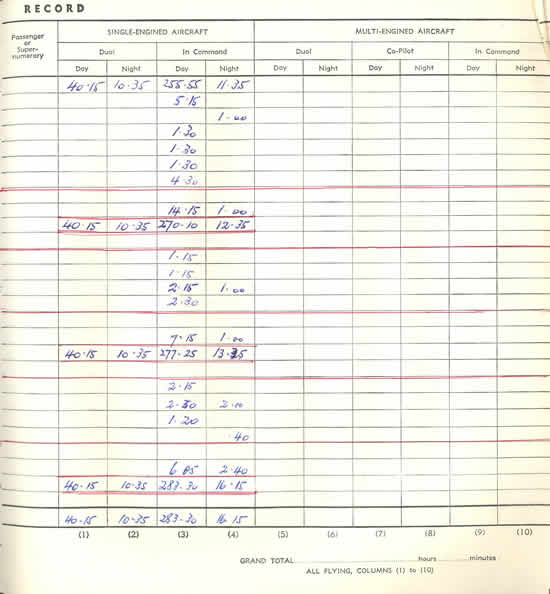 RECORD
Passenger or Super-numerary SINGLE-ENGINED AIRCRAFT MULTI-ENGINED AIRCRAFT
Dual In Command Dual Co-Pilot In Command
Day Night Day Night Day Night Day Night Day Night
40·15 10·35 255·55 11·35
5·15
1·00
1·30
1·30
1·30
4·30
14·15 1·00
40·15 10·35 270·10 12·35
1·15
1·15
2·15 1·00
2·30
7·15 1·00
40·15 10·35 277·25 13·35
2·15
2·30 2·00
1·20
·40
6·05 2·40
40·15 10·35 283·30 16·15
40·15 10·35 283·30 16·15
(1) (2) (3) (4) (5) (6) (7) (8) (9) (10)
GRAND TOTAL hours minutes
ALL FLYING, COLUMNS (1) to (10)